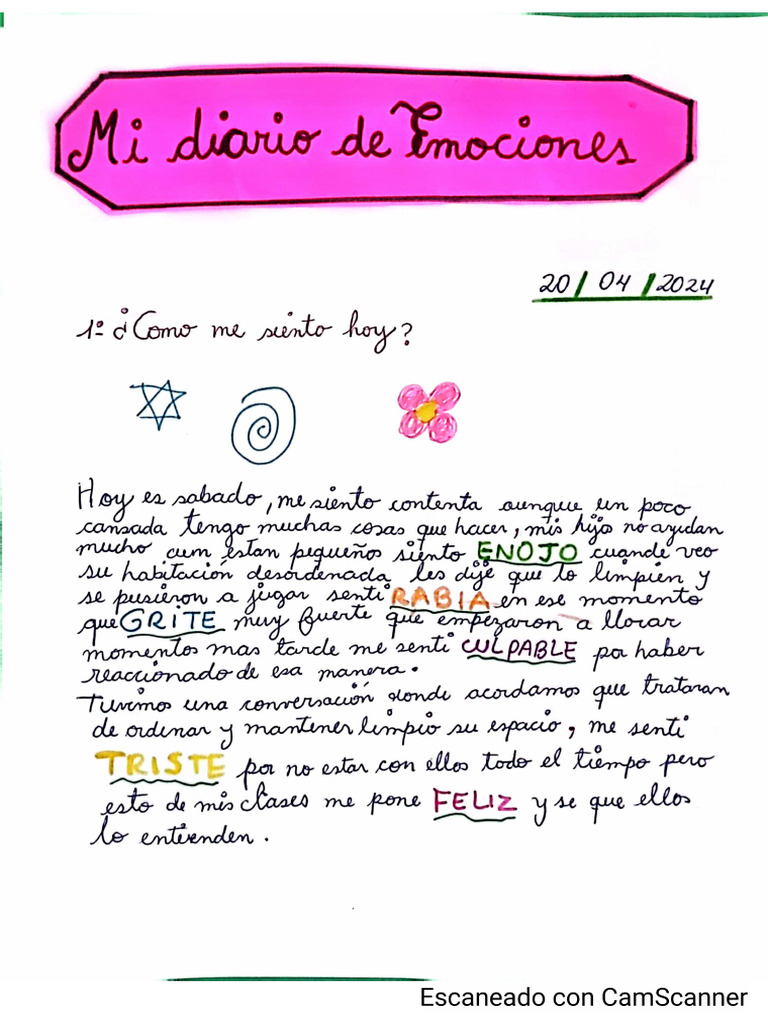 Mi diario de Emociones
20/04/2024
1º ¿Como me siento hoy?
Hoy es sabado, me siento contenta aunque un poco
cansada tengo muchas cosas que hacer, mis hijo no ayudan
mucho aun estan pequeños siento ENOJO cuando veo
su habitación desordenada les dije que lo limpien y
se pusieron a jugar senti RABIA en ese momento
que GRITE muy fuerte que empezaron a llorar
momentos mas tarde me senti CULPABLE por haber
reaccionado de esa manera.
Tuvimos una conversación donde acordamos que trataran
de ordenar y mantener limpio su espacio, me senti
TRISTE por no estar con ellos todo el tiempo pero
esto de mis clases me pone FELIZ y se que ellos
lo entienden.
Escaneado con CamScanner